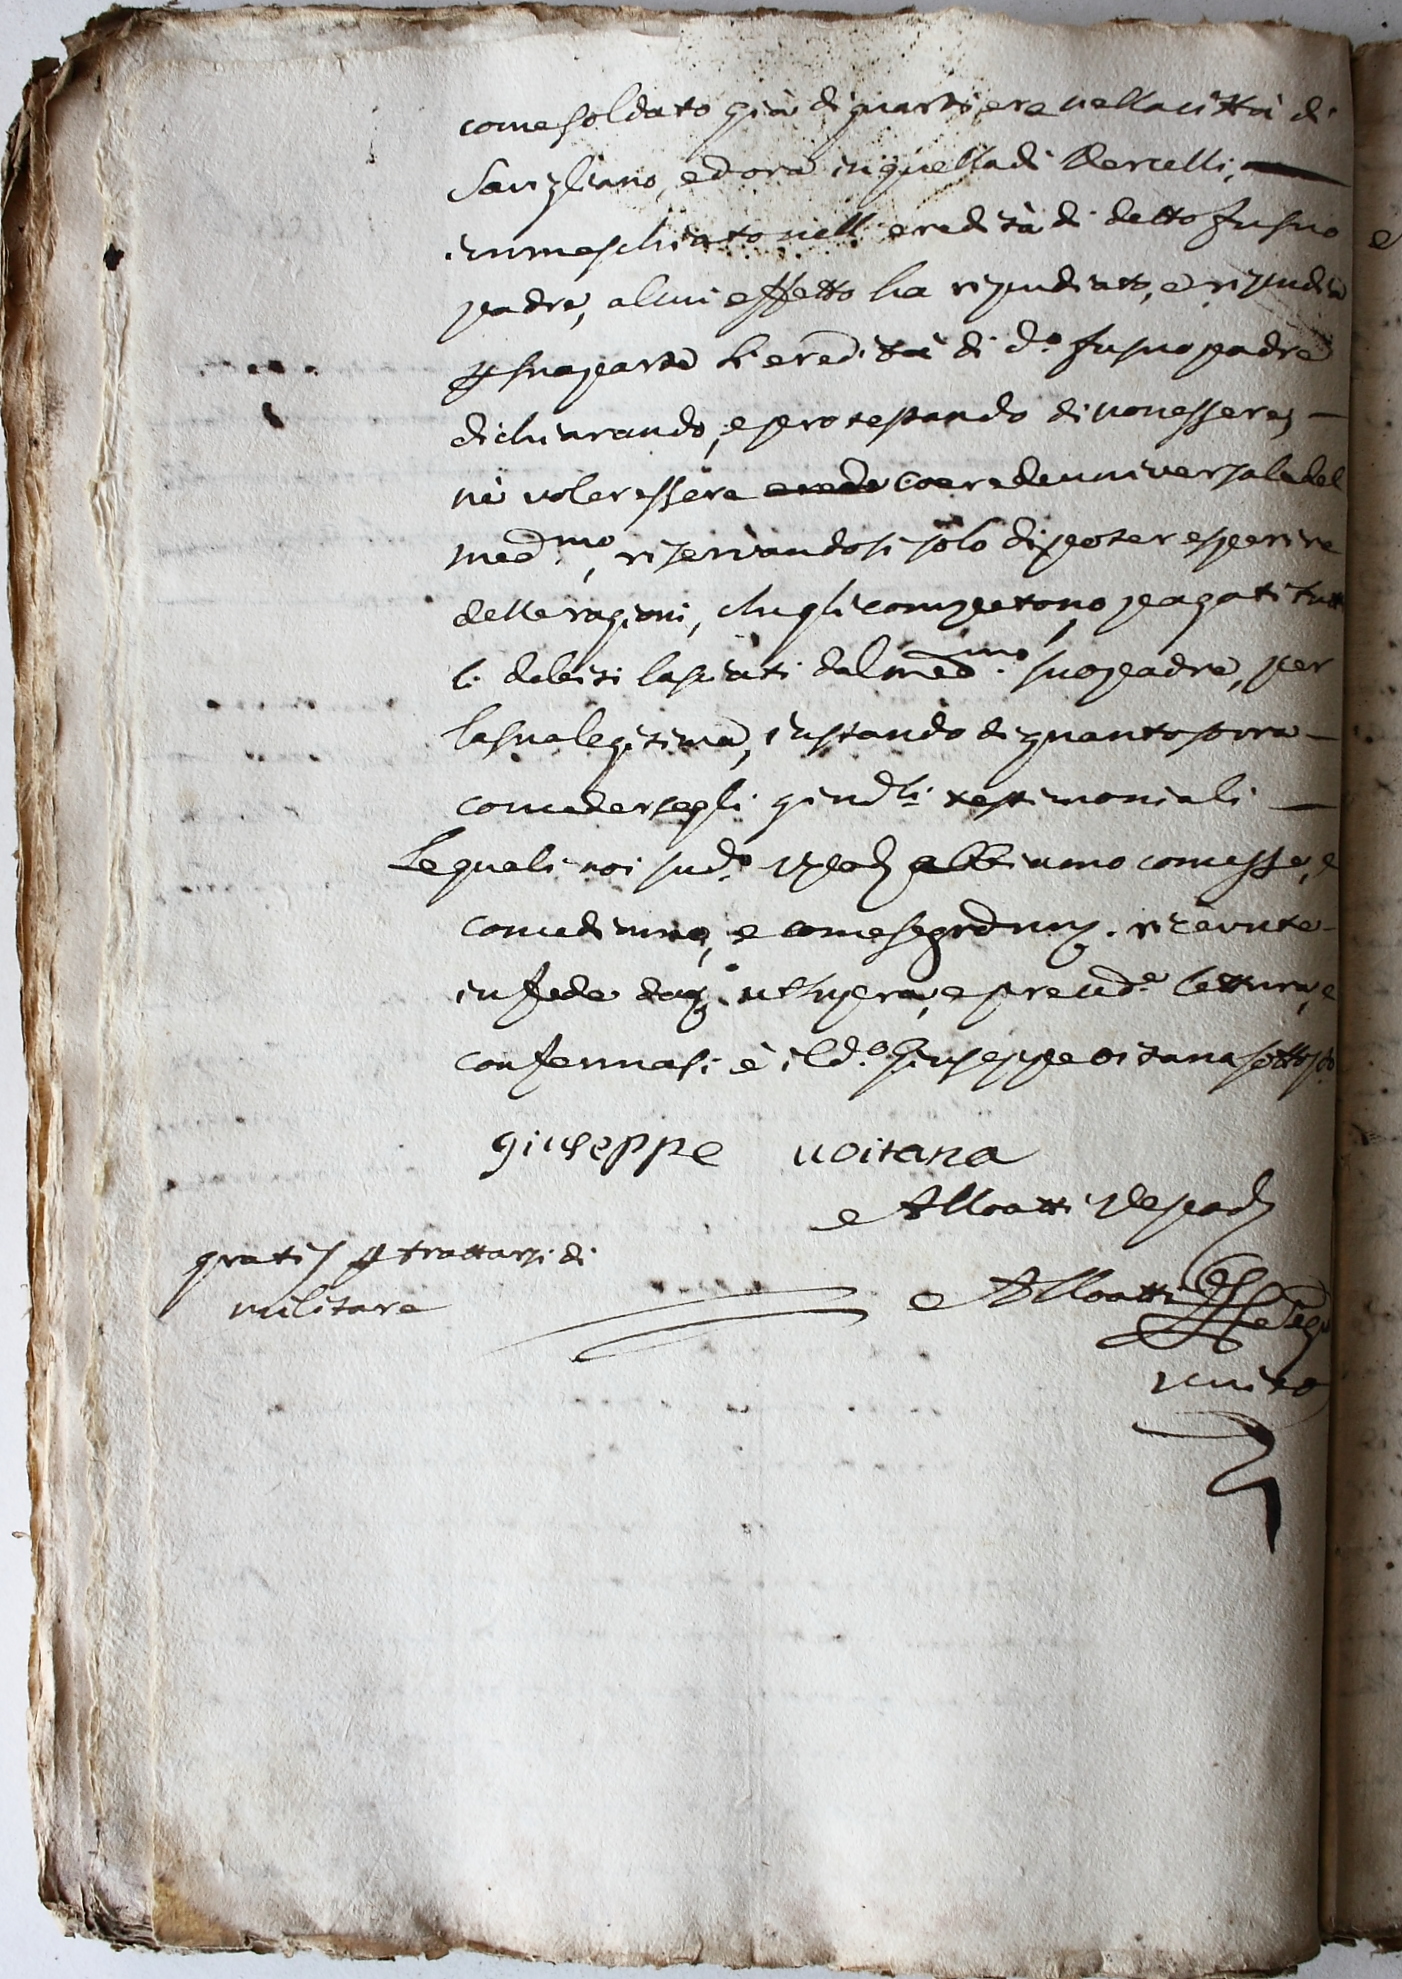 come soldato già di quartiere nella città di
Savigliano, ed ora in quella di Vercelli,
immeschiato nell'eredità di detto fu suo
padre, al cui effetto ha ripudiato, e ripudia
p sua parte l'eredità di d.o fu suo padre
dichiarando, e protestando di non essere,
né voler essere erede coerede universale del
med.mo, riservandosi solo di poter esperire
delle ragioni, che gli competono, pagati tutti
li debiti lasciati dal med.mo suo padre, per
la sua legitima, instando di quanto sovra
concedersegli giud.li testimoniali
Le quali noi sud.o abbiamo concesse, e
concediamo, e come seg.ro ricevute
in fede d'aver, e pre lettura, e
confermasi è il d.o Giuseppe Oitana sottos.to
giuseppe uoitana
Alloatti Vepod
gratis p trattarsi di
militare
Alloatti Seg.o